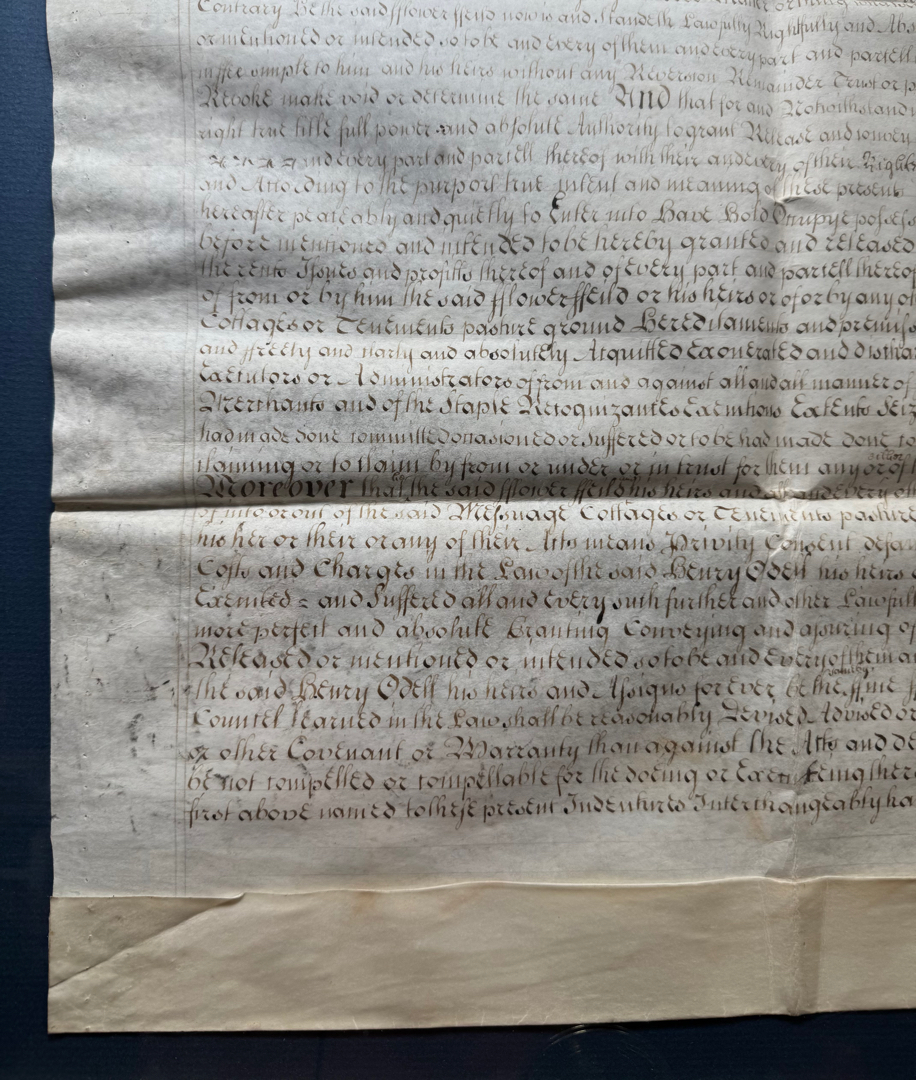 Contrary he the said fflower ffeild now is and Standeth Lawfully Rightfully and Abs
or mentioned or intended so to be and every of them and every part and parcell
in ffee simple to him and his heirs without any Reversion Remainder Trust or
Revoke make void or determine the same And that for and Notwithstand
right true title full power and absolute Authority to grant Release and convey
and every part and parcell thereof with their and every of their Rights
and According to the purport true intent and meaning of these presents
hereafter peaceably and quietly to Enter into Have Hold Occupye possess
before mentioned and intended to be hereby granted and released
the rents Issues and profitts thereof and of every part and parcell thereof
of from or by him the said fflower ffeild or his heirs or of or by any of
Cottages or Tenements pasture ground Hereditaments and premiss
and ffreely and clearly and absolutely Acquitted Exonerated and dischar
Executors or Administrators of from and against all and all manner of
Merchants and of the Staple Recognizances Executions Extents Seiz
had made done committed occasioned or suffered or to be had made done co
claiming or to claim by from or under or in trust for them any or of
Moreover that the said fflower ffeild his heirs and all and every
of into or out of the said Messuage Cottages or Tenements pasture
his her or their or any of their Acts means Privity Consent defau
Costs and Charges in the Law of the said Henry Odell his heirs
Executed = and Suffered all and every such further and other Lawfull
more perfect and absolute Granting Conveying and assuring of
Released or mentioned or intended so to be and every of them a
the said Henry Odell his heirs and Assigns for ever be the same ffine
Councel learned in the Law shall be reasonably Devised Advised or
or other Covenant or Warranty than against the Acts and de
be not compelled or compellable for the doeing or Executeing there
first above named to these present Indentures Interchangeably ha